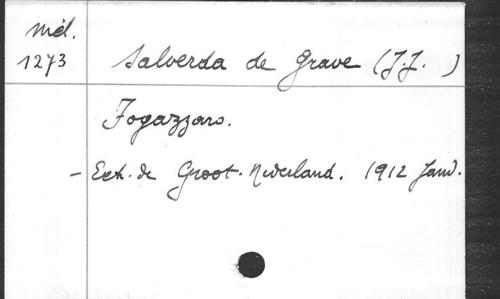 Mél.
1273
Salverda de Grave (J.J. )
Fogazzaro.
- Ext. de Groot-Nederland. 1912 Janv.